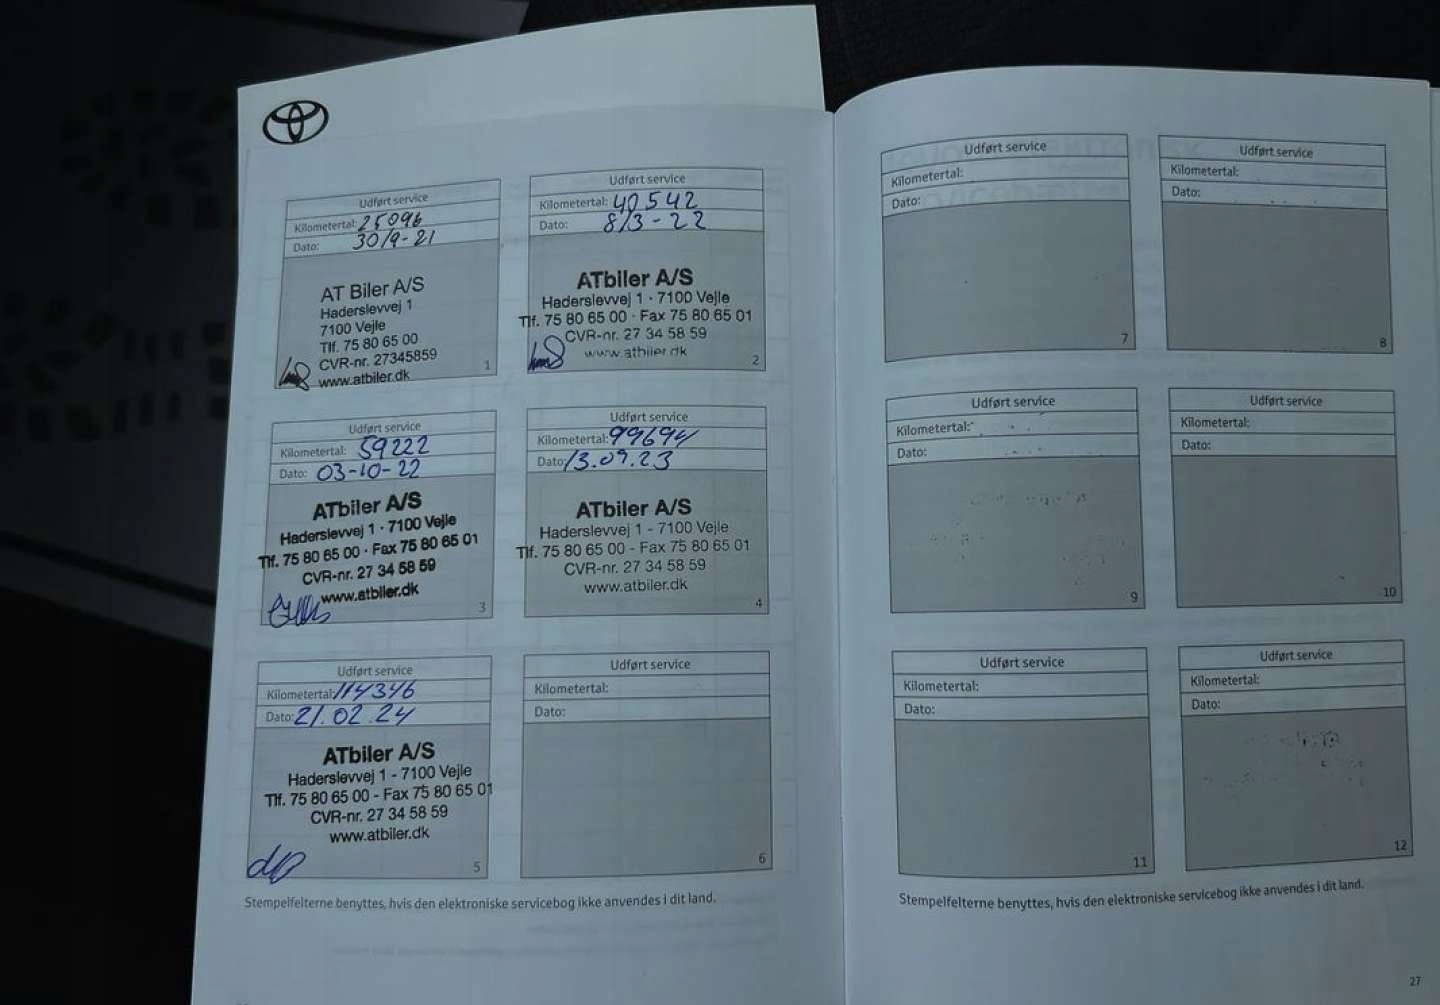 Udført service
Kilometertal: 25096
Dato: 30/9-21
AT Biler A/S
Haderslevvej 1
7100 Vejle
Tlf. 75 80 65 00
CVR-nr. 27345859
www.atbiler.dk
1
Udført service
Kilometertal: 40542
Dato: 8/3-22
ATbiler A/S
Haderslevvej 1 · 7100 Vejle
Tlf. 75 80 65 00 · Fax 75 80 65 01
CVR-nr. 27 34 58 59
www.atbiler.dk
2
Udført service
Kilometertal: 59222
Dato: 03-10-22
ATbiler A/S
Haderslevvej 1 · 7100 Vejle
Tlf. 75 80 65 00 · Fax 75 80 65 01
CVR-nr. 27 34 58 59
www.atbiler.dk
3
Udført service
Kilometertal: 99694
Dato: 13.09.23
ATbiler A/S
Haderslevvej 1 - 7100 Vejle
Tlf. 75 80 65 00 - Fax 75 80 65 01
CVR-nr. 27 34 58 59
www.atbiler.dk
4
Udført service
Kilometertal: 114346
Dato: 21.02.24
ATbiler A/S
Haderslevvej 1 - 7100 Vejle
Tlf. 75 80 65 00 - Fax 75 80 65 01
CVR-nr. 27 34 58 59
www.atbiler.dk
5
Udført service
Kilometertal:
Dato:
6
Stempelfelterne benyttes, hvis den elektroniske servicebog ikke anvendes i dit land.
Udført service
Kilometertal:
Dato:
7
Udført service
Kilometertal:
Dato:
8
Udført service
Kilometertal:
Dato:
9
Udført service
Kilometertal:
Dato:
10
Udført service
Kilometertal:
Dato:
11
Udført service
Kilometertal:
Dato:
12
Stempelfelterne benyttes, hvis den elektroniske servicebog ikke anvendes i dit land.
27